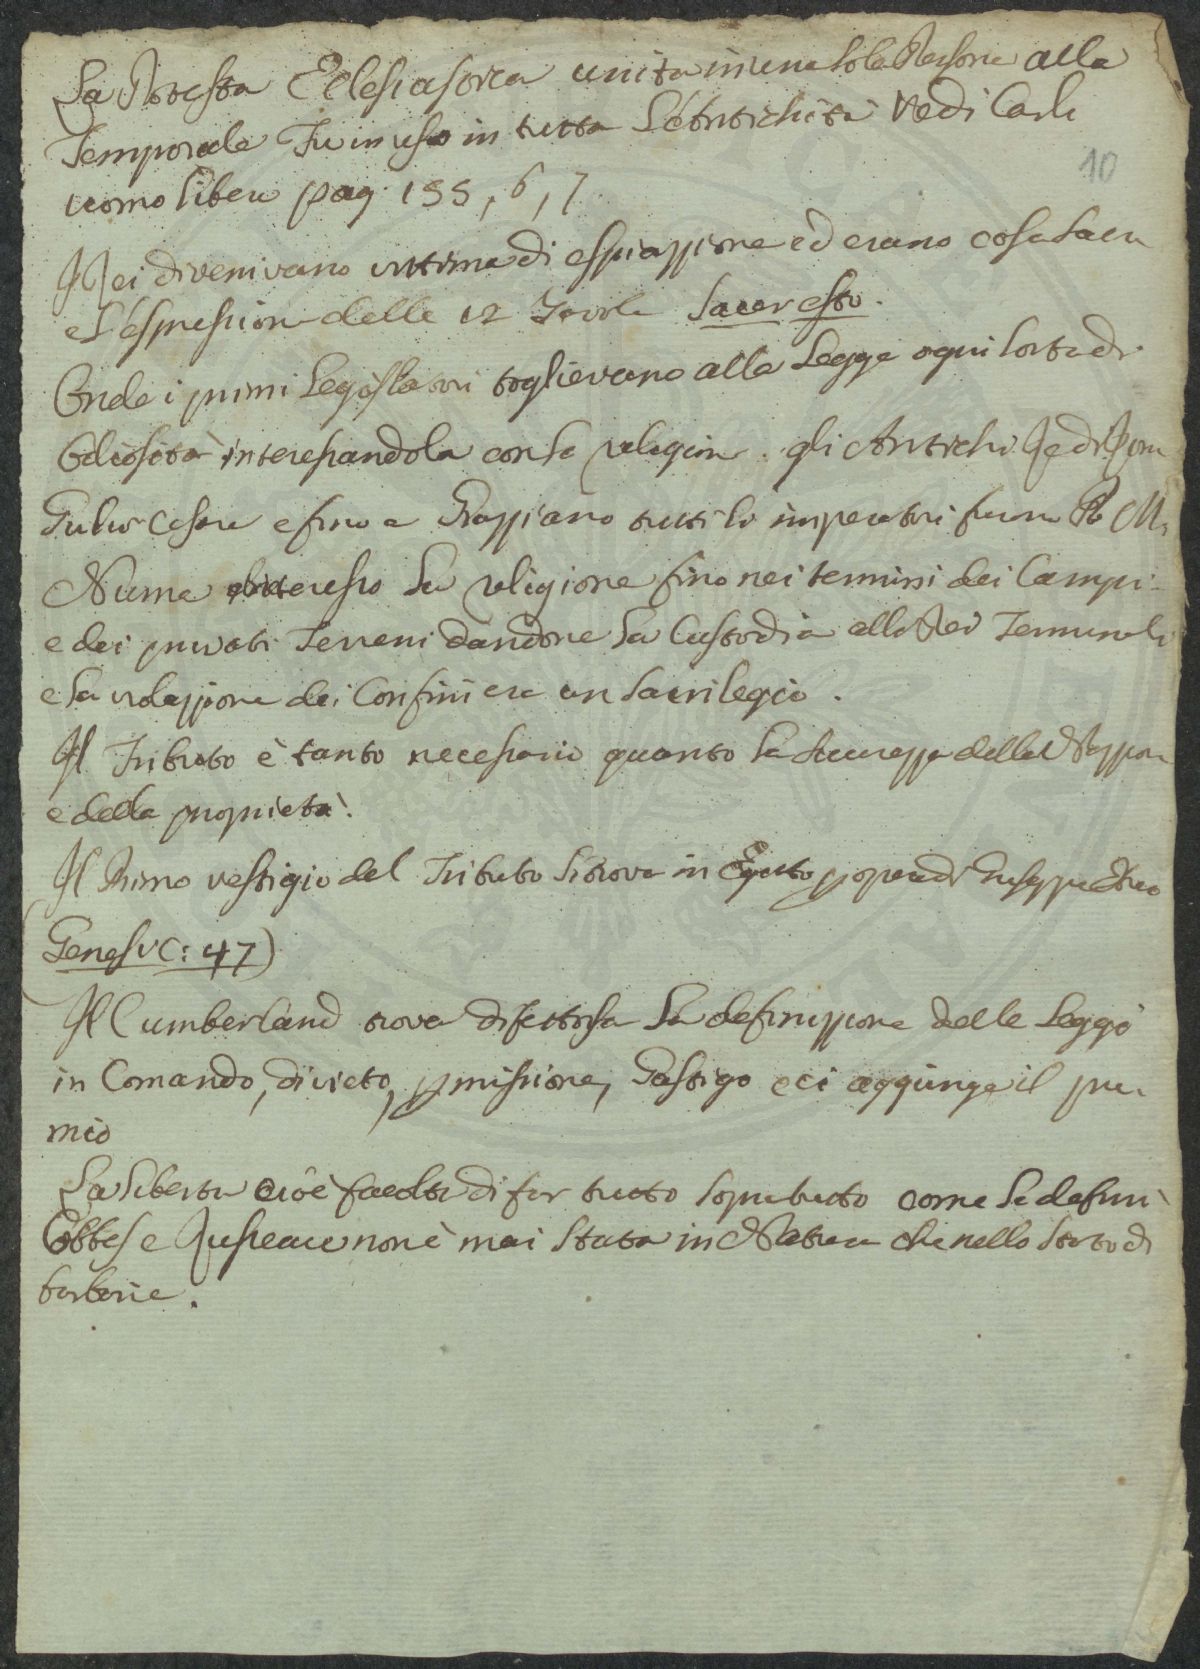 La Potesta Eclesiastica unita in una sola Persona alla
Temporale Fu in uso in tutta L'Antichita Vedi Carli
uomo libero pag. 155, 6, 7
10
I Rei divenivano vittima di espiazzione ed erano cosa sacra
e L'espressione delle 12 Tavole Sacer esto.
Onde i primi Legislatori toglievano alla Legge ogni sorta di
Odiosità interessandola con la religione. gli Antichi Re di Roma
Giulio Cesare e fino a Grazziano tutti li imperatori furono P. M.
Numa interesso La religione fino nei termini dei Campi
e dei privati Terreni dandone La Custodia alli Dei Terminali
e la violazzione dei Confini era un Sacrilegio.
Il Tributo è tanto necessario quanto La sicurezza della Nazzione
e della proprietà.
Il Primo vestigio del Tributo si trova in Egitto opera di Giuseppe Ebreo
(Genesi C: 47)
Il Cumberland trova difettosa La definizzione delle Leggi
in Comando, divieto, pmissione, Gastigo e ci aggiunge il pre-
mio
La libertà cioè facoltà di far tutto sopra tutto come la definì
Obbes e non è mai stata in Natura che nello stato di
barbarie.